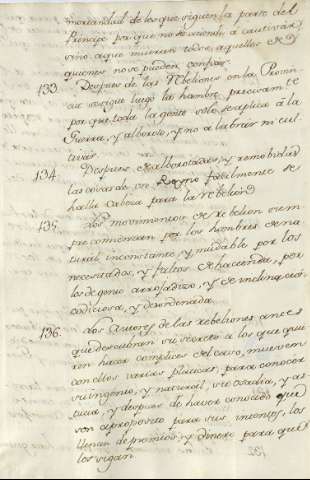 mortandad de los que siguen la parte del
Principe porque no se atiende á cautivar,
sino aque mueran todos aquellos de
quienes no se pueden confiar.
133. Despues de las Rebeliones en la Provin-
cia se sigue luego la hambre precisamte
por que toda la gente solo se aplica á la
Guerra, y alboroto, y no a labrar ni cul-
tivar.
134. Despues de alborotadas, y removidas
las cosas de un Reyno facilmente se
halla cabeza para la rebelion.
135. Los movimientos de rebelion siem-
pre comienzan por los hombres de na-
tural inconstante, y mudable por los
necesitados, y faltos de hacienda, por
los de genio arrojadizo, y de inclinacion
codiciosa, y desordenada.
136. Los Autores de las rebeliones antes
que descubran su secreto a los que quie-
ren hacer complices del caso, mueven
con ellos varias platicas, para conocer
su ingenio, y natural, su osadia, y as-
tucia, y despues de haver conocido que
son aproposito para sus intentos, los
llenan de premios, y dinero para que
los sigan.